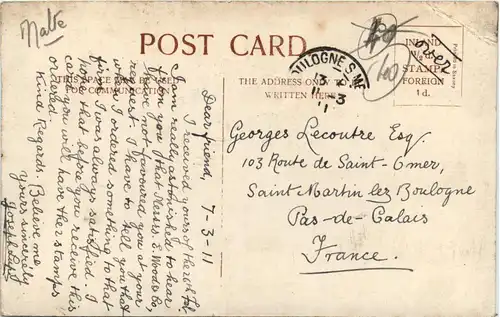 Malte
POST CARD
THIS SPACE MAY BE USED
FOR COMMUNICATION
THE ADDRESS ONLY TO BE
WRITTEN HERE
INLAND
½d.
STAMP
FOREIGN
1d.
BOULOGNE S MER
13
3
11
7-3-11
Dear friend,
I received yours of the
I am really astonished to hear
from you that Messrs Wood & Co,
have not favoured you at your
request. I have to tell you that
when I ordered something from
them I was always satisfied. I
hope that before you receive this
card you will have the stamps
ordered.
Kind Regards. Believe me
Yours sincerely
Joseph
Georges Lecoutre Esq.
103 Route de Saint-Omer,
Saint Martin lez Boulogne
Pas-de-Calais
France.